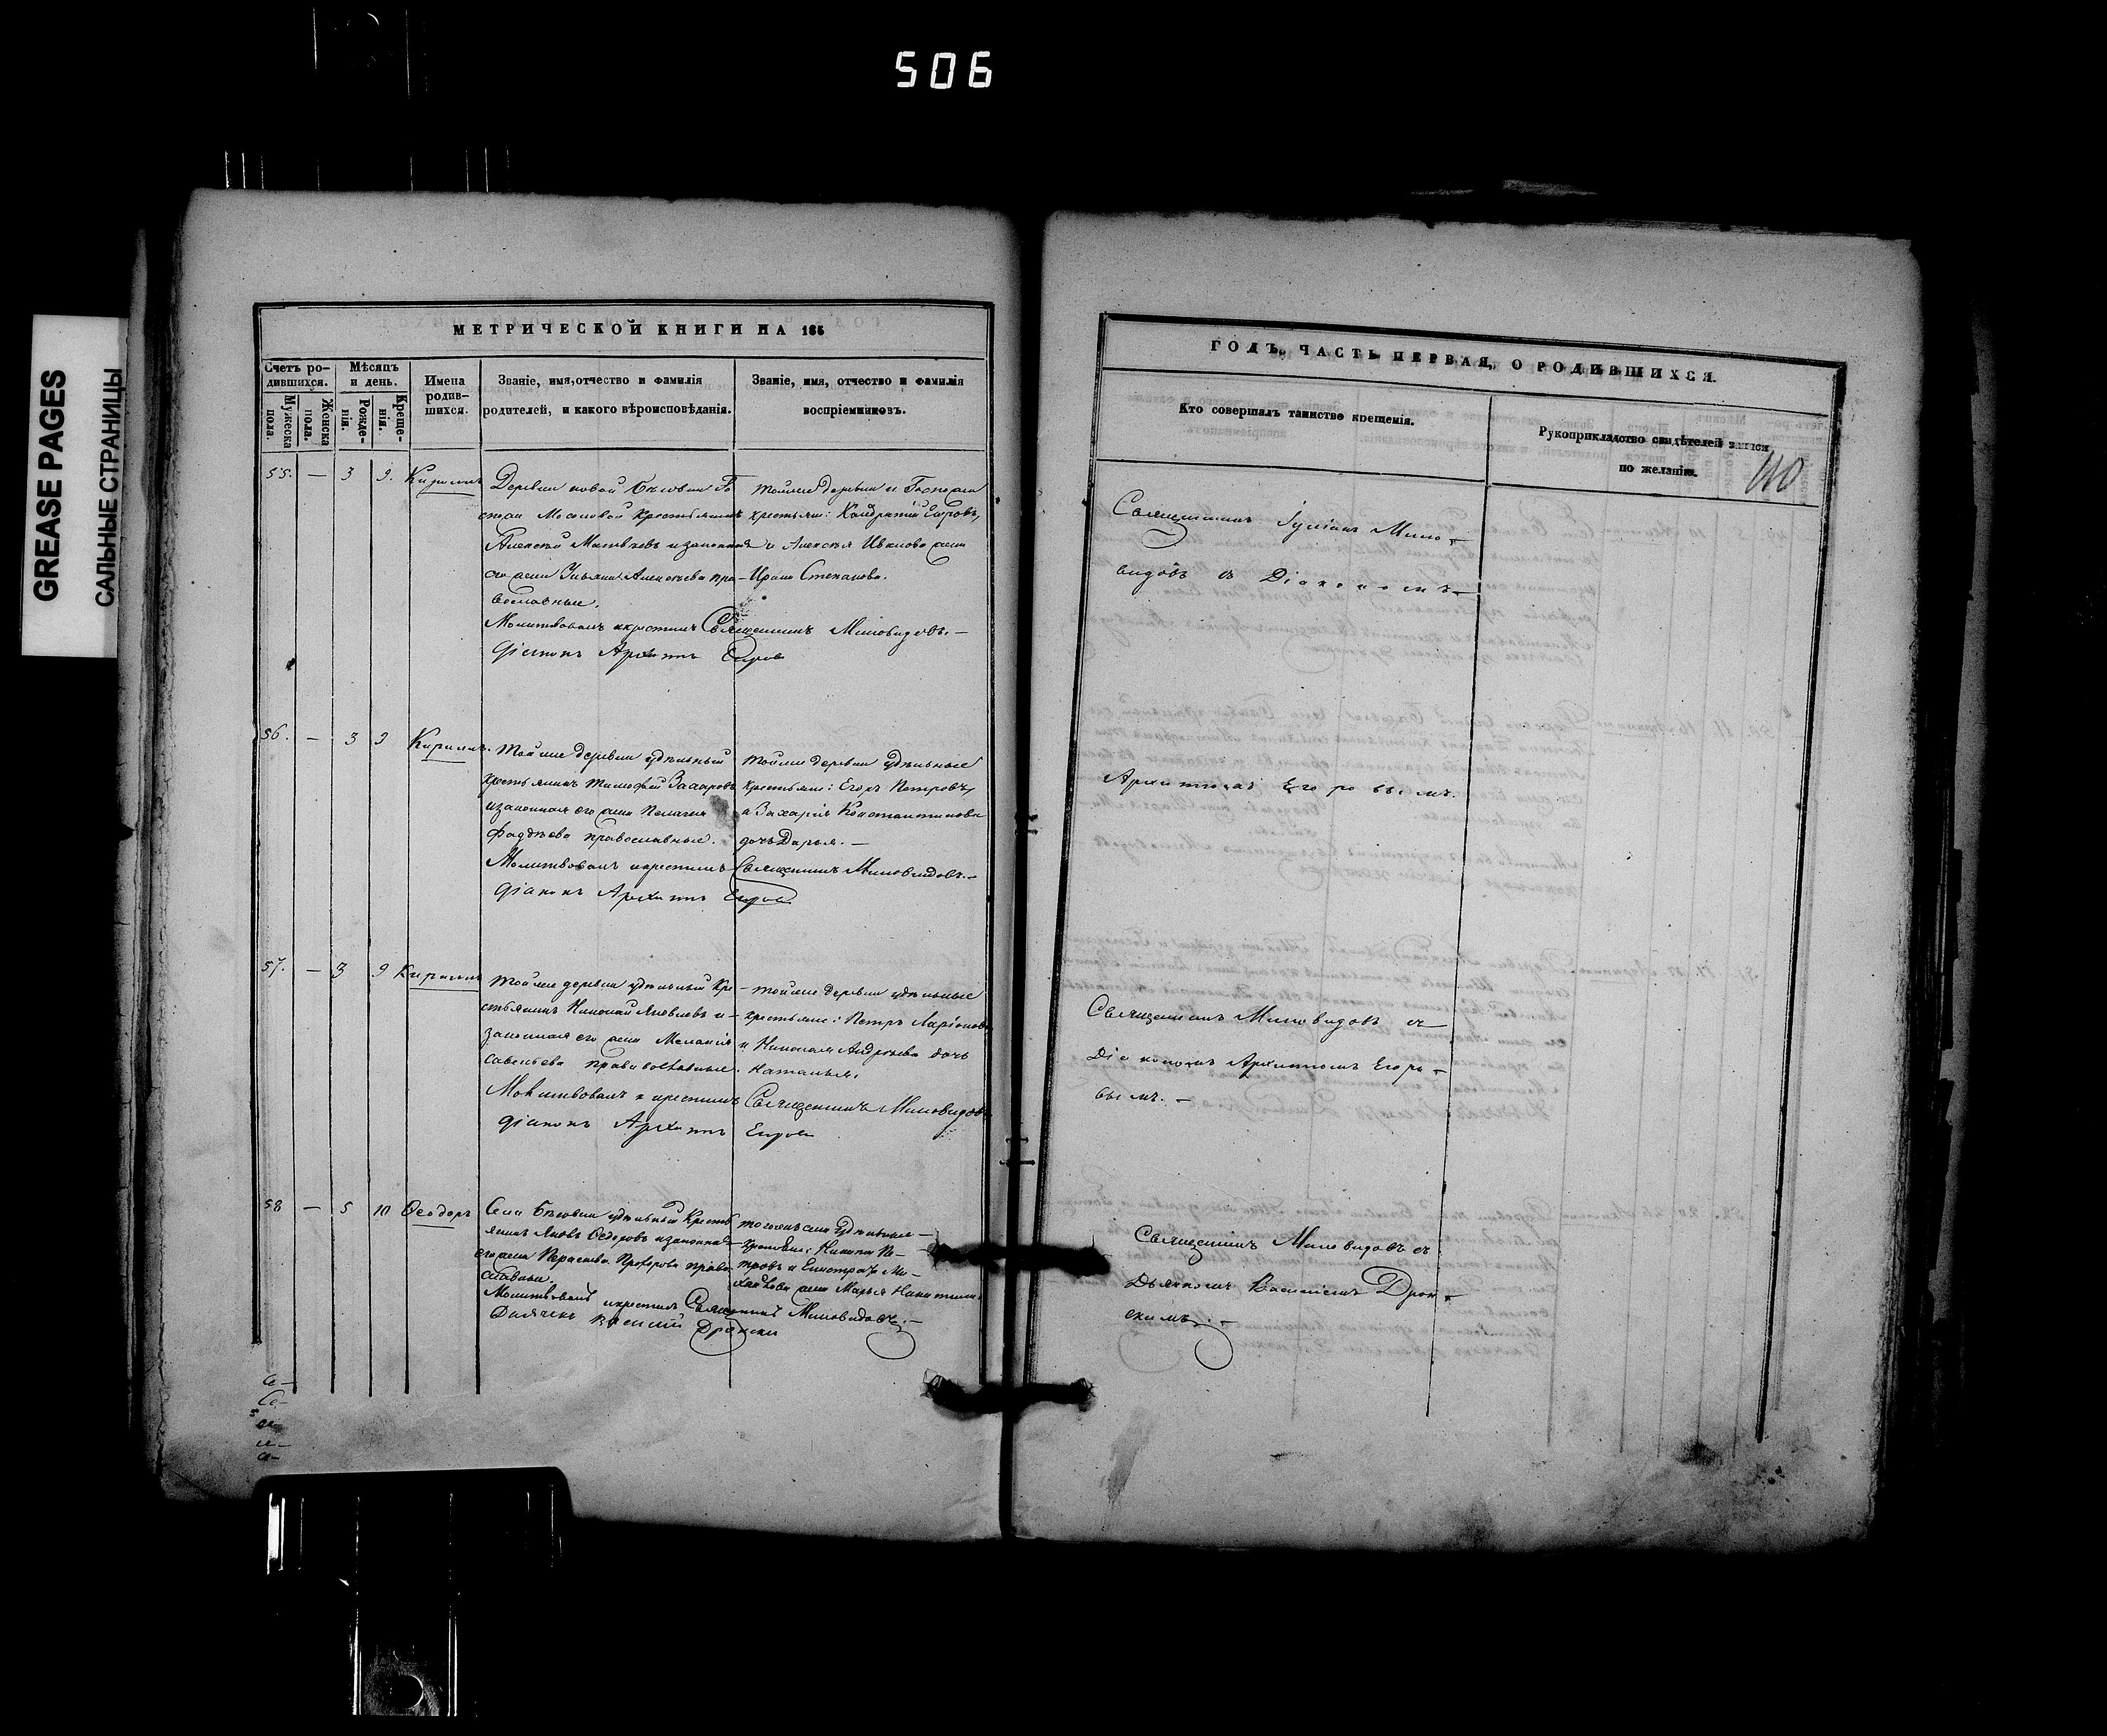 506
GREASE PAGES
САЛЬНЫЕ СТРАНИЦЫ
МЕТРИЧЕСКОЙ КНИГИ НА 185
Счетъ ро-
дившихся.
Мужеска
пола.
Женска
пола.
Мѣсяцъ
и день.
Рожде-
нія.
Креще-
нія.
Имена
родив-
шихся.
Званіе, имя, отчество и фамилія
родителей, и какого вѣроисповѣданія.
Званіе, имя, отчество и фамилія
воспріемниковъ.
55. — 3 9. Кириллъ
Деревни новой
крестьянинъ
Алексѣй Матвѣевъ и законная
его жена Алексѣева пра-
вославные.
тойже деревни и Госпожи
крестьяне: Кондратій
и Алексѣя Иванова жена
Ирина Степанова.
Молитвовалъ и крестилъ Священникъ Миловидовъ. —
діаконъ Архипъ Егоров
56. — 3 9 Кириллъ.
тойже деревни удѣльный
крестьянинъ Тимофей Захаровъ
и законная его жена Пелагея
Фадѣева православные.
тойже деревни удѣльные
крестьяне: Егоръ Петровъ,
и Захарія Константинова
дочь Дарья. —
Молитвовалъ и крестилъ Священникъ Миловидовъ. —
діаконъ Архипъ Егоров
57. — 3 9 Кириллъ
тойже деревни удѣльный кре-
стьянинъ Николай Яковлевъ и
законная его жена Меланія
Савельева православные.
тойже деревни удѣльные
крестьяне: Петръ Ларіоновъ
и Николая Андреева дочь
Наталья.
Молитвовалъ и крестилъ Священникъ Миловидовъ
діаконъ Архипъ Егоров
58 — 5 10 Ѳеодоръ
Села удѣльный кресть
янинъ Яковъ Ѳедоровъ и законная
его жена Параскева Прохорова право
славные.
тогожъ села удѣльные
крестьяне: Никита Пе-
тровъ и Ми-
хайлова жена Марья Никитина
Молитвовалъ и крестилъ Священникъ Миловидовъ. —
Дьячекъ Василий
ГОДЪ, ЧАСТЬ ПЕРВАЯ, О РОДИВШИХСЯ.
Кто совершалъ таинство крещенія.
Рукоприкладство свидѣтелей записи
по желанію.
110
Священникъ Мило-
видовъ съ Діакономъ
Архипомъ Егоровымъ.
Священникъ Миловидовъ съ
Діакономъ Архипомъ Егоро-
вымъ. —
Священникъ Миловидовъ съ
Дьячкомъ Василіемъ Дрон-
скимъ. —